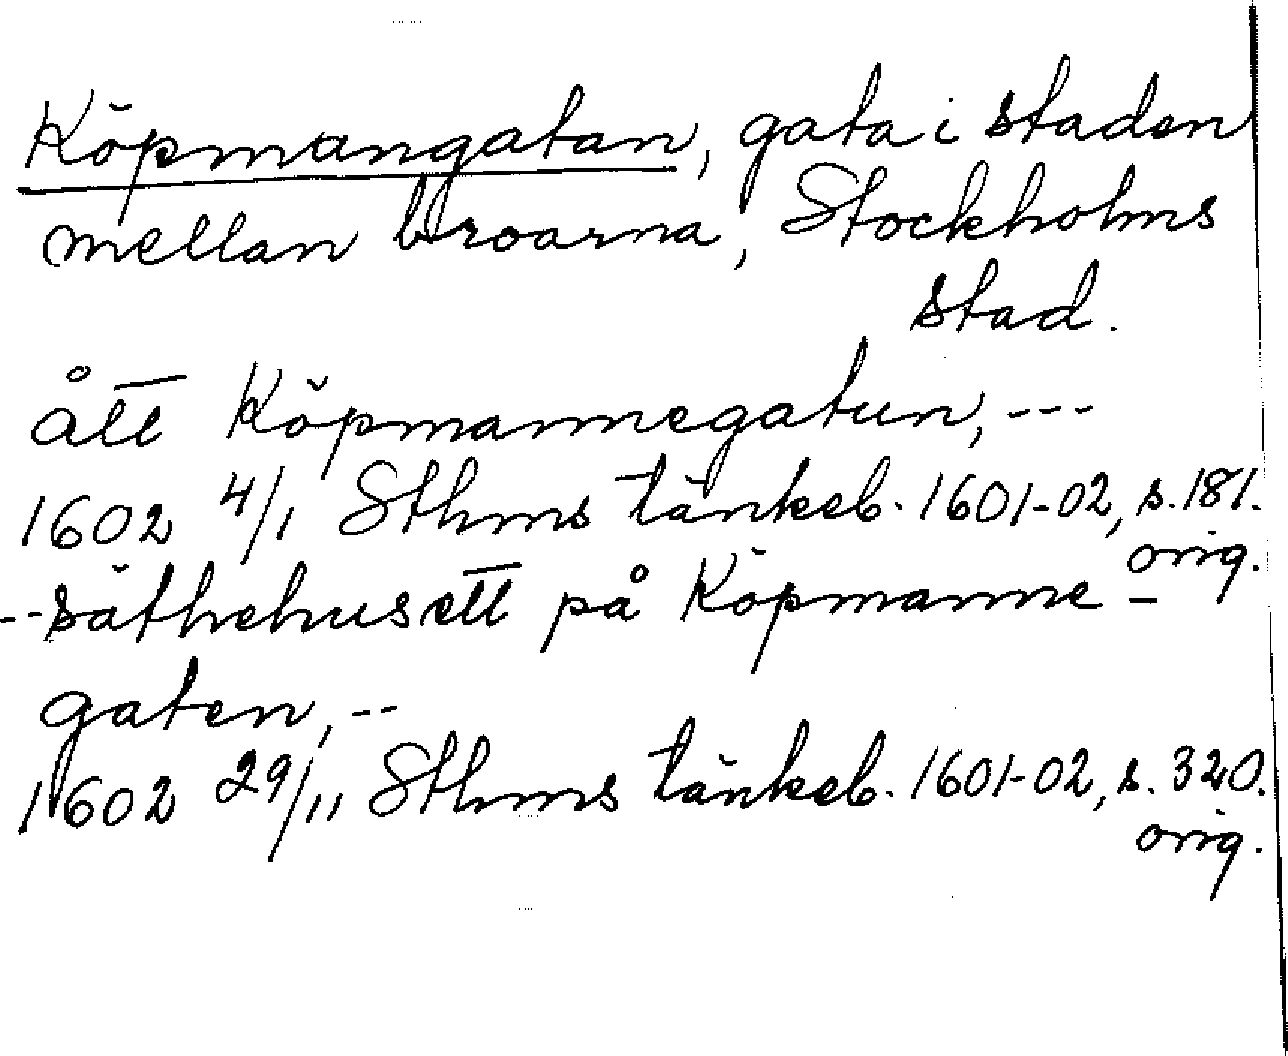 Köpmangatan, gata i staden
mellan broarna, Stockholms
stad.
ått Köpmannegatun, ---
1602 4/1 Sthms tänkeb. 1601-02, s. 181.
orig.
-- säthehusett på Köpmanne-
gaten, --
1602 29/11 Sthms tänkeb. 1601-02, s. 320.
orig.